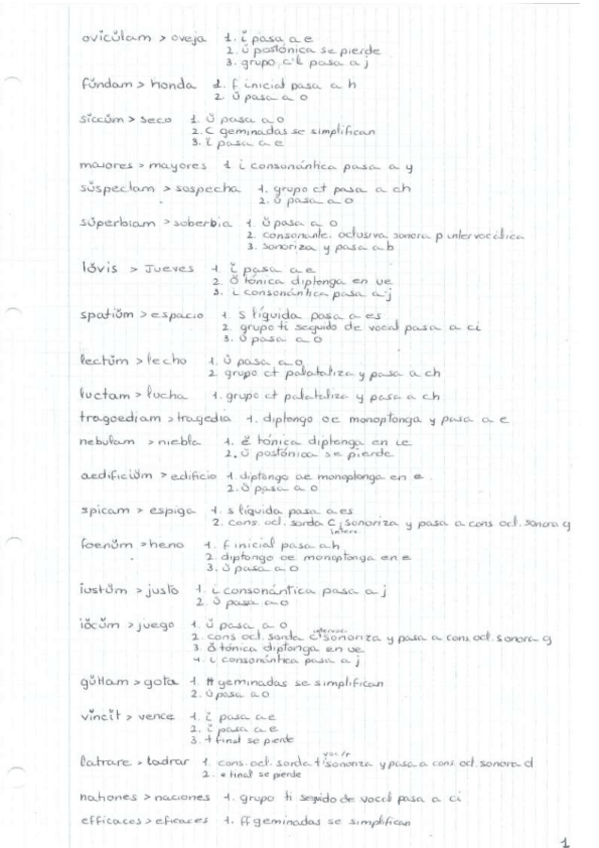 ovicŭlam > oveja 1. ĭ pasa a e
2. ŭ postónica se pierde
3. grupo c'l pasa a j
fŭndam > honda 1. f inicial pasa a h
2. ŭ pasa a o
sĭccŭm > seco 1. ŭ pasa a o
2. C geminadas se simplifican
3. ĭ pasa a e
maiores > mayores 1 i consonántica pasa a y
sŭspectam > sospecha 1. grupo ct pasa a ch
2. ŭ pasa a o
sŭperbiam > soberbia 1. ŭ pasa a o
2. consonante. oclusiva sonora p intervocálica
3. sonoriza y pasa a b
Iŏvis > Jueves 1. ĭ pasa a e
2. ŏ tónica diptonga en ue
3. i consonántica pasa a j
spatiŭm > espacio 1. s líquida pasa a es
2. grupo ti seguido de vocal pasa a ci
3. ŭ pasa a o
lectŭm > lecho 1. ŭ pasa a o
2. grupo ct palataliza y pasa a ch
luctam > lucha 1. grupo ct palataliza y pasa a ch
tragoediam > tragedia 1. diptongo oe monoptonga y pasa a e
nebulam > niebla 1. ĕ tónica diptonga en ie
2. ŭ postónica se pierde
aedificiŭm > edificio 1. diptongo ae monoptonga en e
2. ŭ pasa a o
spicam > espiga 1. s líquida pasa a es
2. cons. ocl. sorda C interv. sonoriza y pasa a cons ocl. sonora g
foenŭm > heno 1. f inicial pasa a h
2. diptongo oe monoptonga en e
3. ŭ pasa a o
iustŭm > justo 1. i consonántica pasa a j
2. ŭ pasa a o
iŏcŭm > juego 1. ŭ pasa a o
2. cons ocl. sorda c intervoc. sonoriza y pasa a cons ocl. sonora g
3. ŏ tónica diptonga en ue
4. i consonántica pasa a j
gŭttam > gota 1. tt geminadas se simplifican
2. ŭ pasa a o
vĭncĭt > vence 1. ĭ pasa a e
2. ĭ pasa a e
3. t final se pierde
latrare > ladrar 1. cons. ocl. sorda t sonoriza y pasa a cons ocl. sonora d
2. e final se pierde
nationes > naciones 1. grupo ti seguido de vocal pasa a ci
efficaces > eficaces 1. ff geminadas se simplifican
1